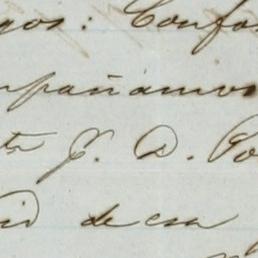 gos: Confor
mpañamos
te J. D. Po
id de esa